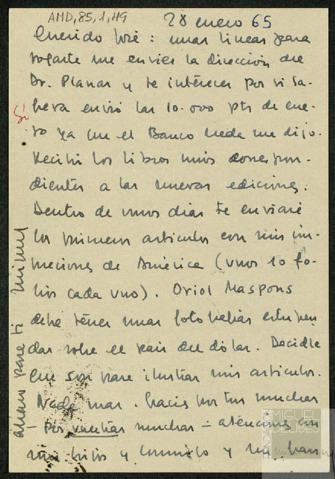 AMD,85,1,119
28 enero 65
Querido José: unas líneas para
rogarte me envíes la dirección de
Dr. Planas y te intereses por si Sa-
envió las 10.000 pts de ene-
Sí
ro ya que el Banco nada me dijo.
Recibí los libros míos correspon-
dientes a las nuevas ediciones.
Dentro de unos días te enviaré
los primeros artículos con mis im-
presiones de América (unos 10 fo-
lios cada uno). Oriol Maspons
debe tener unas fotografías estupen-
das sobre el país del dólar. Decidle
que son para ilustrar mis artículos.
Nada más. Gracias por tus muchas
- por vuestras muchas - atenciones con
mis hijos y conmigo y un gran
abrazo para ti